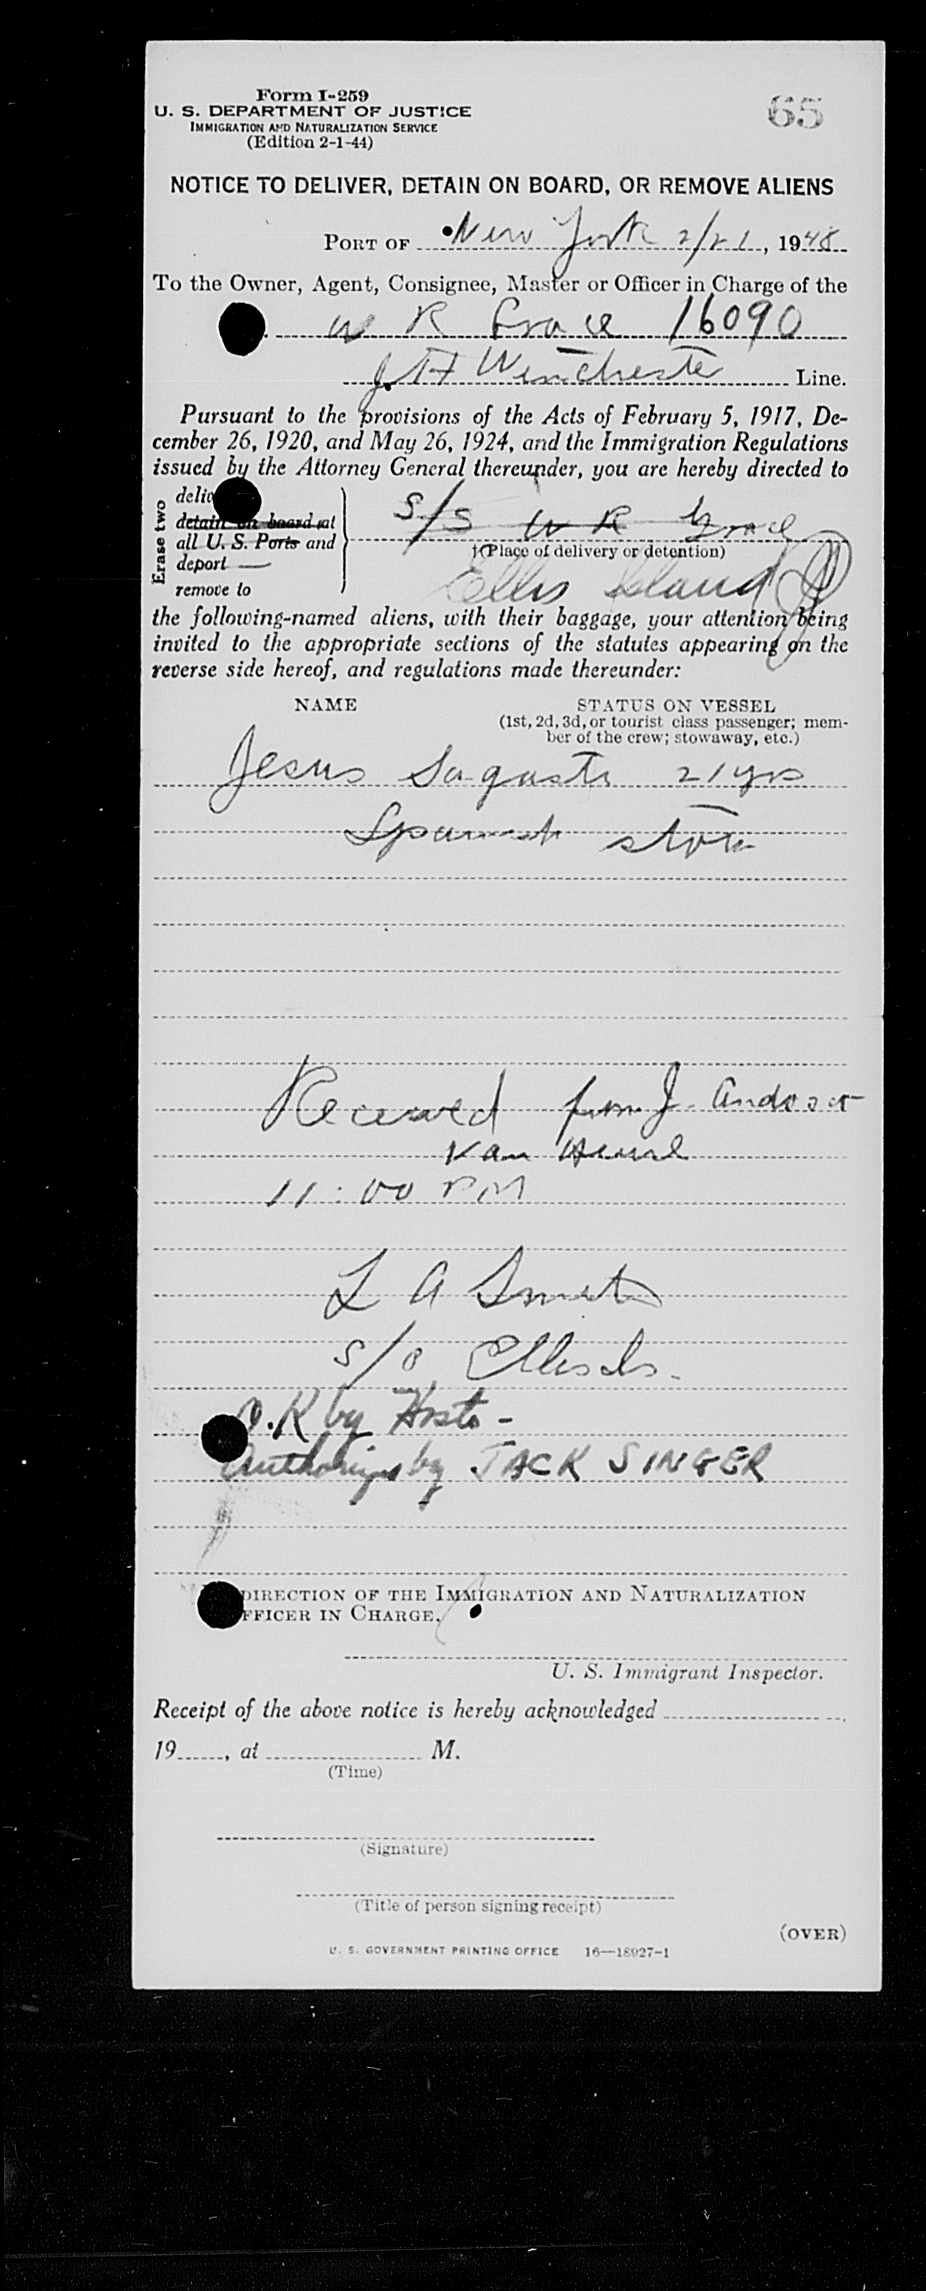 Form I-259
U. S. DEPARTMENT OF JUSTICE
IMMIGRATION AND NATURALIZATION SERVICE
(Edition 2-1-44)
65
NOTICE TO DELIVER, DETAIN ON BOARD, OR REMOVE ALIENS
PORT OF New York 2/21, 1948
To the Owner, Agent, Consignee, Master or Officer in Charge of the
W R Grace 16090
J. H Winchester Line.
Pursuant to the provisions of the Acts of February 5, 1917, De-
cember 26, 1920, and May 26, 1924, and the Immigration Regulations
issued by the Attorney General thereunder, you are hereby directed to
Erase two
deliv
detain on board at
all U. S. Ports and
deport
remove to
S/S W R Grace
†(Place of delivery or detention)
Ellis Island
the following-named aliens, with their baggage, your attention being
invited to the appropriate sections of the statutes appearing on the
reverse side hereof, and regulations made thereunder:
NAME STATUS ON VESSEL
(1st, 2d, 3d, or tourist class passenger; mem-
ber of the crew; stowaway, etc.)
Jesus Sagasti 21 yrs
Spanish stow
Received from J.
Van
11:00 PM
L A Smith
S/O Ellis Is.
O.K by
by JACK SINGER
DIRECTION OF THE IMMIGRATION AND NATURALIZATION
FFICER IN CHARGE.
U. S. Immigrant Inspector.
Receipt of the above notice is hereby acknowledged
19 , at M.
(Time)
(Signature)
(Title of person signing receipt)
(OVER)
U. S. GOVERNMENT PRINTING OFFICE 16—18927-1